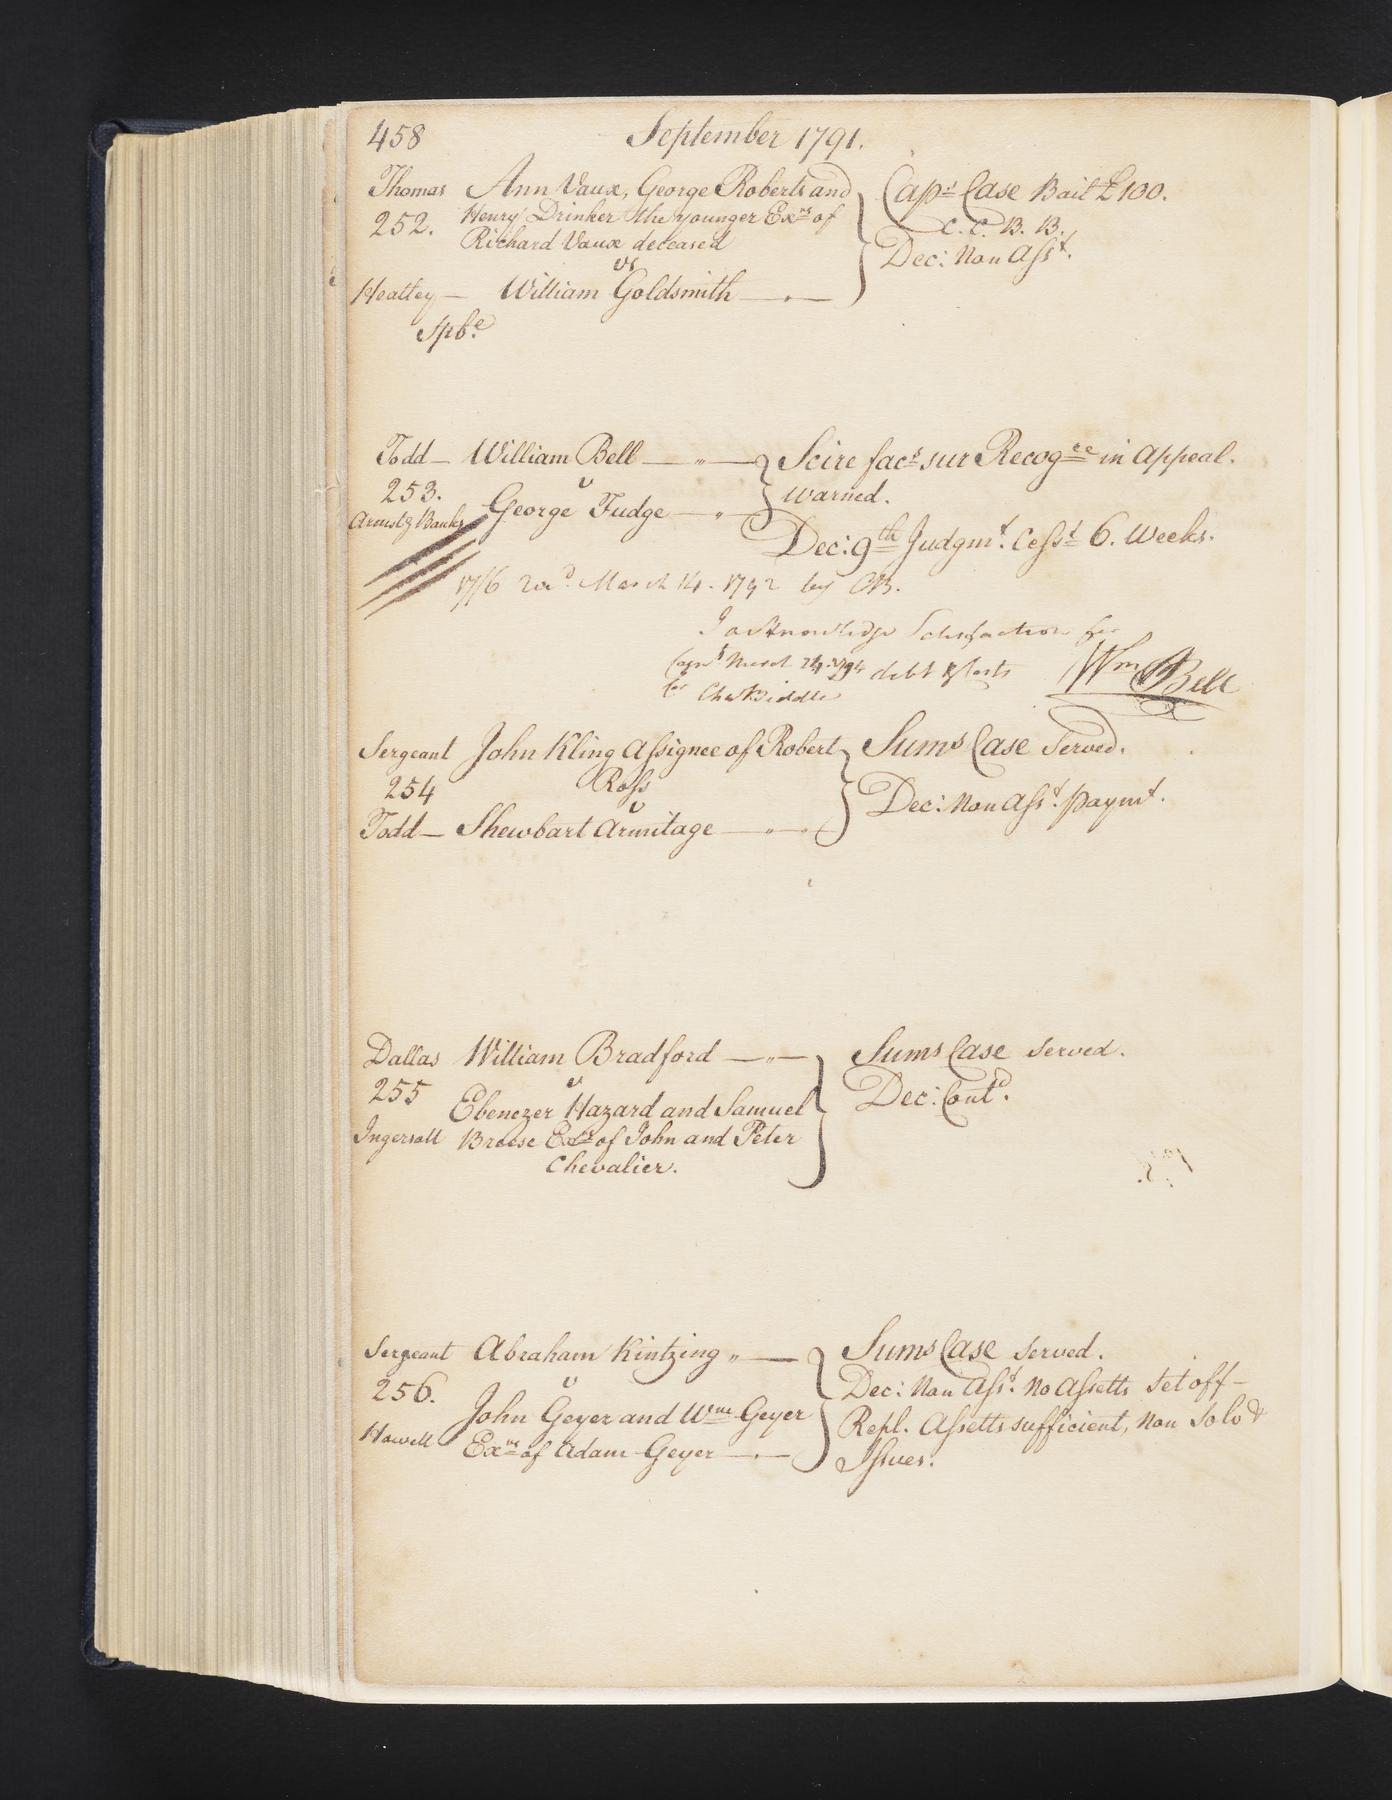 458 September 1791.
Thomas Ann Vaux, George Roberts and Caps Case Bail £100.
252. Henry Drinker the younger Exrs of C. C. B. B.
Richard Vaux deceased Dec: Non Asst.
vs
Heatley — William Goldsmith
Spbe
Todd — William Bell Scire facs sur Recogce in Appeal.
253. v warned.
Armstg Banks George Fudge
Dec: 9th Judgmt. Cesst 6. Weeks.
17/6 March 14. 1792 by CB.
I acknowledge Satisfaction for
debt & Costs Wm Bell
Cha Biddle
Sergeant John Kling Assignee of Robert Sums Case Served.
254 Ross Dec: Non Asst. paymt.
v
Todd — Shewbart Armitage
Dallas William Bradford Sums Case Served.
255 v Dec: Contd.
Ebenezer Hazard and Samuel
Ingersoll Breese Exrs of John and Peter
Chevalier.
Sergeant Abraham Kintzing Sums Case Served.
256. v Dec: Non Asst. No Assetts Set off —
John Geyer and Wm Geyer Repl. Assetts sufficient, Non Solv &
Howell Exrs of Adam Geyer Issues.